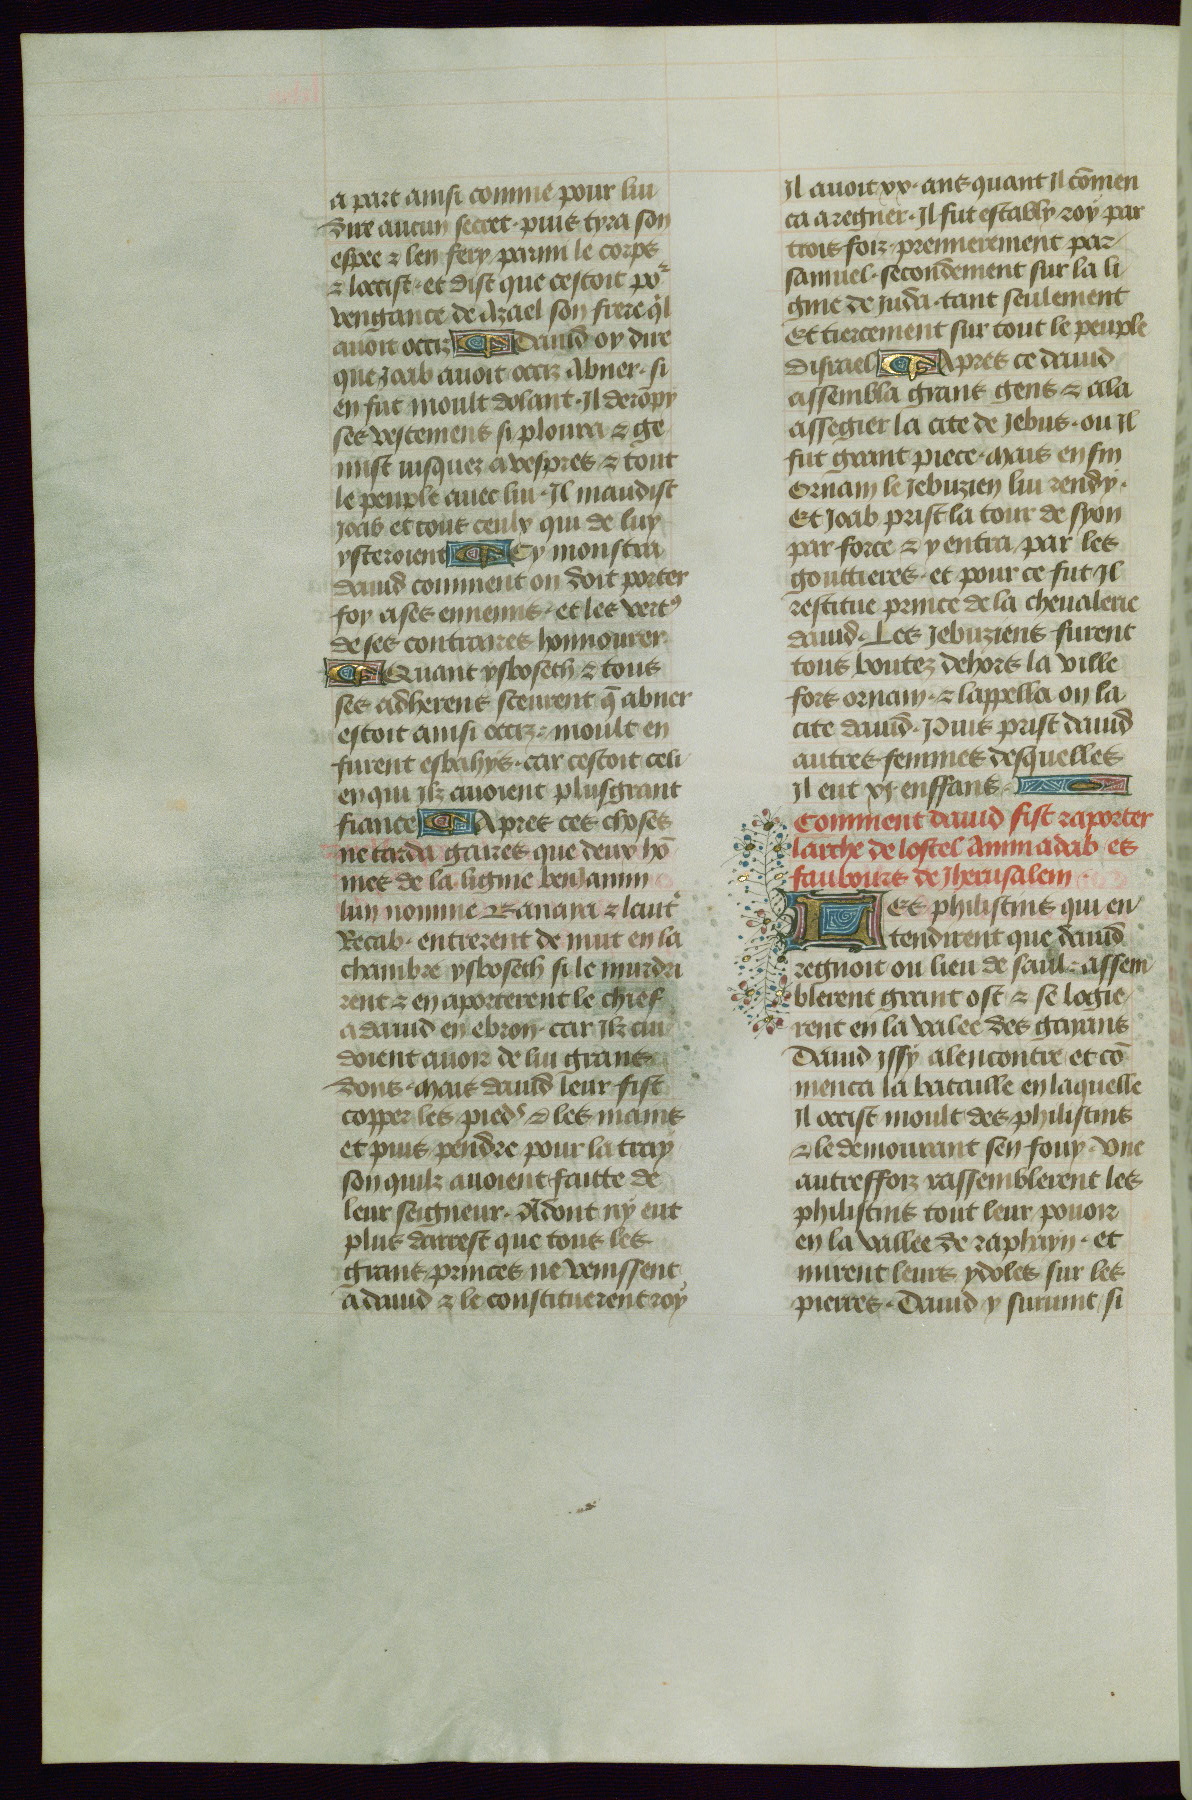 a part ainsi comme pour lui
dire aucun secret · puis tyra son
espee ⁊ len fery parmi le corps
⁊ loccist · et dist que cestoit po᷑
vengance de Azael son frere q̇l
auoit occiz Dauid oy dire
que Joab auoit occiz Abner · si
en fut moult dolant · Il deropy
ses vestemens si ploura ⁊ ge
mist iusquez a vespres ⁊ tout
le peuple auec lui · Il maudist
Joab et tous ceulx qui de luy
ysteroient Cy monstra
dauid comment on doit porter
foy a ses ennemis · et les vertꝰ
de ses contraires honnourer
Quant ysboseth ⁊ tous
ses adherens sceurent q̄ abner
estoit ainsi occiz · moult en
furent esbahys · car cestoit celi
en qui Ilz auoient plus grant
fiance Apres ces choses
ne tarda gaires que deux hō
mes de la lignie benJamin
lun nomme Banana ⁊ laut᷑
Recab · entrerent de nuit en la
chambre ysboseth si le murdri
rent ⁊ en aporterent le chief
a dauid en ebron · car Ilz cui
doient auoir de lui grans
dons · Mais dauid leur fist
copper les pieds ⁊ les mains
et puis pendre pour la tray
son quilz auoient faitte de
leur seigneur · Adont ny eut
plus darrest que tous les
grans princes ne venissent
a dauid ⁊ le constituerent roy
Il auoit xx · ans quant Il cōmen
ca a regner · Il fut estably roy par
trois foiz · premierement par
samuel · secondement sur la li
gnie de Juda · tant seulement
Et tiercement sur tout le peuple
disrael Apres ce dauid
assembla grans gens ⁊ ala
assegier la cite de Jebus · ou Il
fut grant piece · Mais en fin
Ornam le Jebuzien lui rendy ·
Et Joab prist la tour de syon
par force ⁊ y entra par les
gouttieres · et pour ce fut Il
restitue prince de la cheualerie
dauid · Les Jebuziens furent
tous boutez dehors la ville
fors ornam · ⁊ lappella on la
cite dauid · Puis prist dauid
autres femmes desquelles
Il eut xj enffans ·
Comment dauid fist raporter
larche de lostel Aminadab es
faubours de Jherusalem ·
Les philistins qui en
tendirent que dauid
regnoit ou lieu de saul · assem
blerent grant ost ⁊ se logie
rent en la valee des gayans
Dauid Issy alencontre et cō
menca la bataille en laquelle
Il occist moult des philistins
⁊ le demourant sen fouy · Vne
autreffoiz rassemblerent les
philistins tout leur pouoir
en la vallee de raphayn · et
mirent leurs ydoles sur les
pierres · Dauid y suruint si